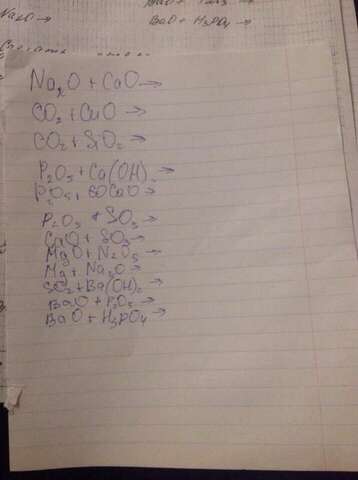 BaO + H₃PO₄ →
Na₂O + CaO →
CO₂ + CuO →
CO₂ + SiO₂ →
P₂O₅ + Ca(OH)₂ →
P₂O₅ + CaO →
P₂O₅ + SO₃ →
CaO + SO₃ →
MgO + N₂O₅ →
Mg + Na₂O →
SO₂ + Ba(OH)₂ →
BaO + P₂O₅ →
BaO + H₃PO₄ →